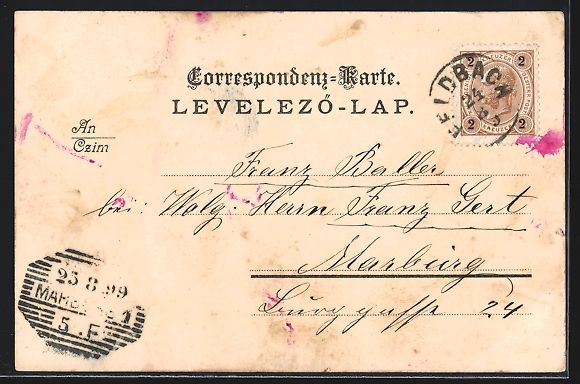 Correspondenz-Karte.
LEVELEZŐ-LAP.
2 KREUZER 2
2 KREUZER 2
FELDBACH
An
Czim
Franz Baller
bei: Wolg. Herrn Franz Gert
Marburg
24
25 8 99
5. F